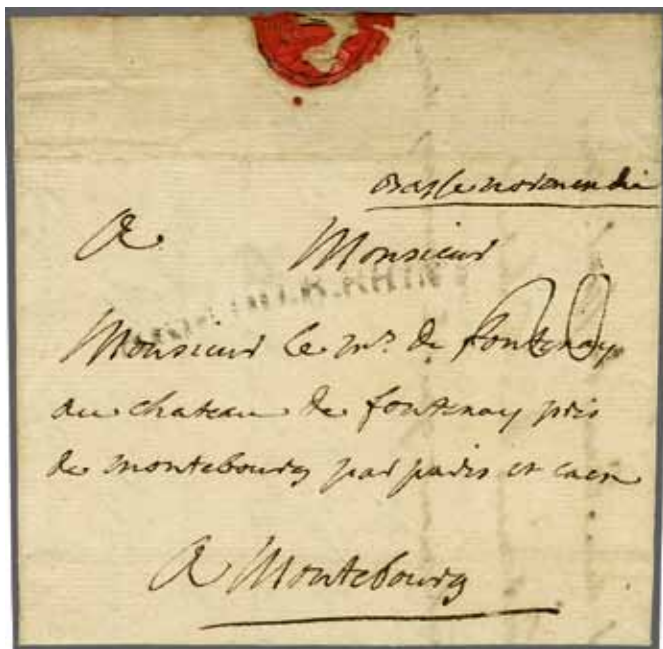 Basse normendie
A Monsieur
Monsieur le m^rs. de fontenay
au chateau de fontenay près
de montebourg par paris et caen
A Montebourg